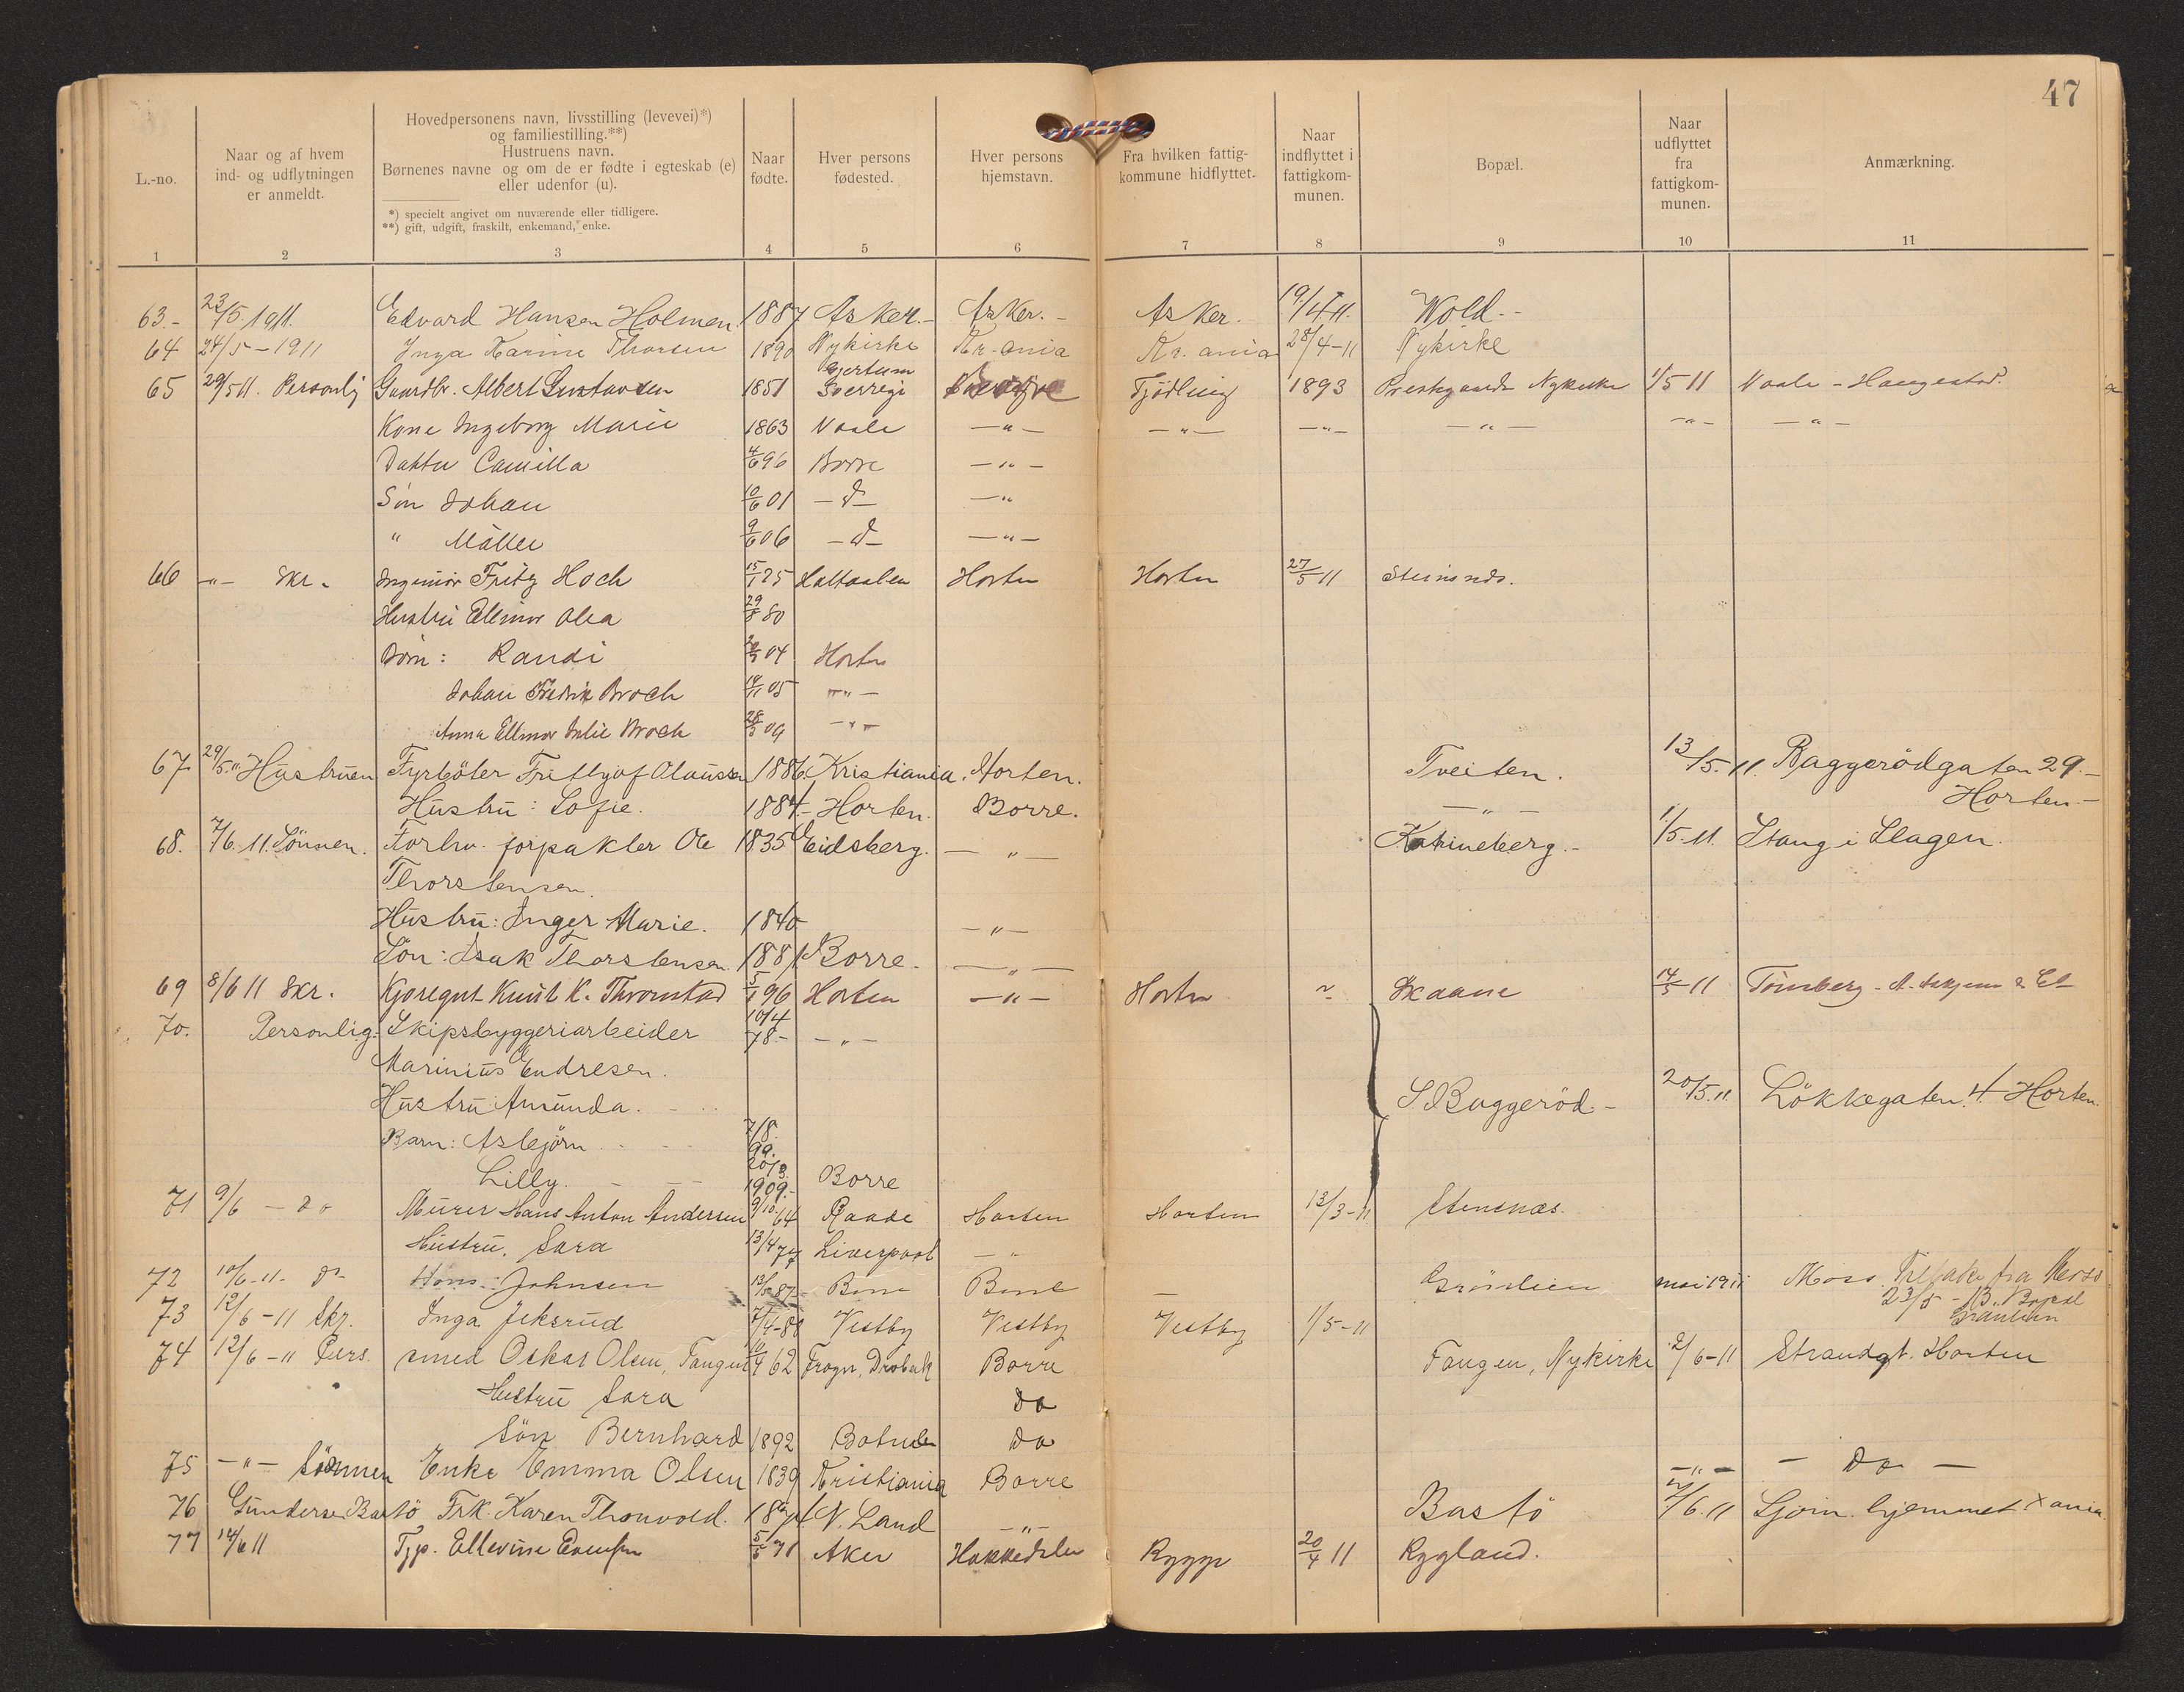 47
L.-no.
Naar og af hvem
ind- og udflytningen
er anmeldt.
Hovedpersonens navn, livsstilling (levevei)*)
og familiestilling.**)
Hustruens navn.
Børnenes navne og om de er fødte i egteskab (e)
eller udenfor (u).
*) specielt angivet om nuværende eller tidligere.
**) gift, udgift, fraskilt, enkemand, enke.
Naar
fødte.
Hver persons
fødested.
Hver persons
hjemstavn.
Fra hvilken fattig-
kommune hidflyttet.
Naar
indflyttet i
fattigkom-
munen.
Bopæl.
Naar
udflyttet
fra
fattigkom-
munen.
Anmærkning.
1 2 3 4 5 6 7 8 9 10 11
63.- 23/5 1911. Edvard Hansen Holmen. 1887 Asker.- Asker.- Asker. 19/4 11. Wold.-
64 24/5-1911 Inga Karine Thorsen 1890 Nykirke Kr.ania Kr.ania 28/4-11 Nykirke
65 29/5 11. Personlig Gaardbr. Albert Gustavsen 1851 Sverrige Tjödling 1893 Prestgaarden Nykirke 1/5 11 Vaale - Haugestad
Kone Ingeborg Marie 1863 Vaale -"- -"- -"- -"- -"- -"-
Datter Camilla 4/6 96 Borre -"-
Sön Johan 10/6 01 -d- -"
" Möller 9/6 06 -d- -"-
66 -"- Skr. Ingeniör Fritz Hoch 15/1 75 Holtaalen Horten Horten 27/5 11 Steinsnds.
Hustru Ellinor Olea 29/8 80
Börn: Randi 04 Horten
Johan Fredrik Broch 14/11 05 -"-
Anna Ellinor Julie Broch 28/3 09 -"-
67. 29/5." Hustruen Fyrböter Frithjof Olaussen 1886 Kristiania. Horten. Tveiten. 13/5.11. Baggerödgaten 29.-
Hustru: Sofie. 1884.- Horten. Borre. -"- Horten.-
68. 7/6.11. Sönnen. Forhv. forpakter Ole 1835 Eidsberg. -"- Katrineberg.- 1/5-11. Stang i Slagen.
Thorstensen.
Hustru: Inger Marie. 1840 -"-
Sön: Isak Thorstensen. 1881. Borre. -"-
69 8/6 11 Skr. Kjöregut Knut K. Thronstad 5/1 96 Horten -"- Horten ~ Skaane 14/5 11 Tönsberg
70. Personlig. Skipsbyggeriarbeider 10/4 78.- -"-
Marinius Endresen.
Hustru Amunda. S. Baggeröd.- 20/5.11. Lökkegaten 4. Horten.
Barn: Asbjörn 7/8. 99.
Lilly. 20/3. 1909.- Borre
71 9/6 - do Murer Hans Anton Andersen 9/10 64 Raade Horten Horten 13/3-11 Stensnæs.
Hustru, Sara 13/4 77 Liverpool -"
72 10/6-11- do Hans Johnsen 13/5 87 Borre Borre - Grönlien mai 1911 Moss. Tilbake fra Moss
23/5-13. Bopæl
Grönlien
73 12/6-11 Skr. Inga Jeksrud 7/4-88 Vestby Vestby Vestby 1/5-11
74 12/6-11 Pers. smed Oskar Olsen, Tangen 10/4 62 Frogn, Dröbak Borre Tangen, Nykirke 2/6-11 Strandgt. Horten
Hustru Sara do
Sön Bernhard 1892 Botne do
75 -"- Sönnen Enke Emma Olsen 1839 Kristiania Borre -"- - do -
76 Gundersen Bastö Frk. Karen Thonvold. N. Land -"- Bastö 7/6.11 Sjöm. hjemmet Xania
77 14/6 11 Tjp. Ellevine Evensen 5/5 71 Aker Hakkedalen Rygge 20/4 11 Rygland.